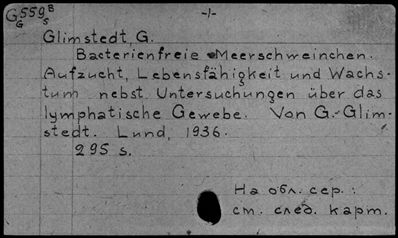 G 559 B
G S
-1-
Glimstedt, G.
Bacterienfreie Meerschweinchen.
Aufzucht, Lebensfähigkeit und Wachs-
tum nebst Untersuchungen über das
lymphatische Gewebe. Von G. Glim-
stedt. Lund, 1936.
295 s.
На обл. сер.:
см. след. карт.